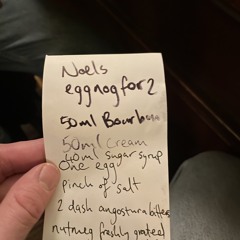 Noels
eggnog for 2
50ml Bourbon
50ml Cream
40ml sugar syrup
One egg
Pinch of salt
2 dash angostura bitters
nutmeg freshly grated